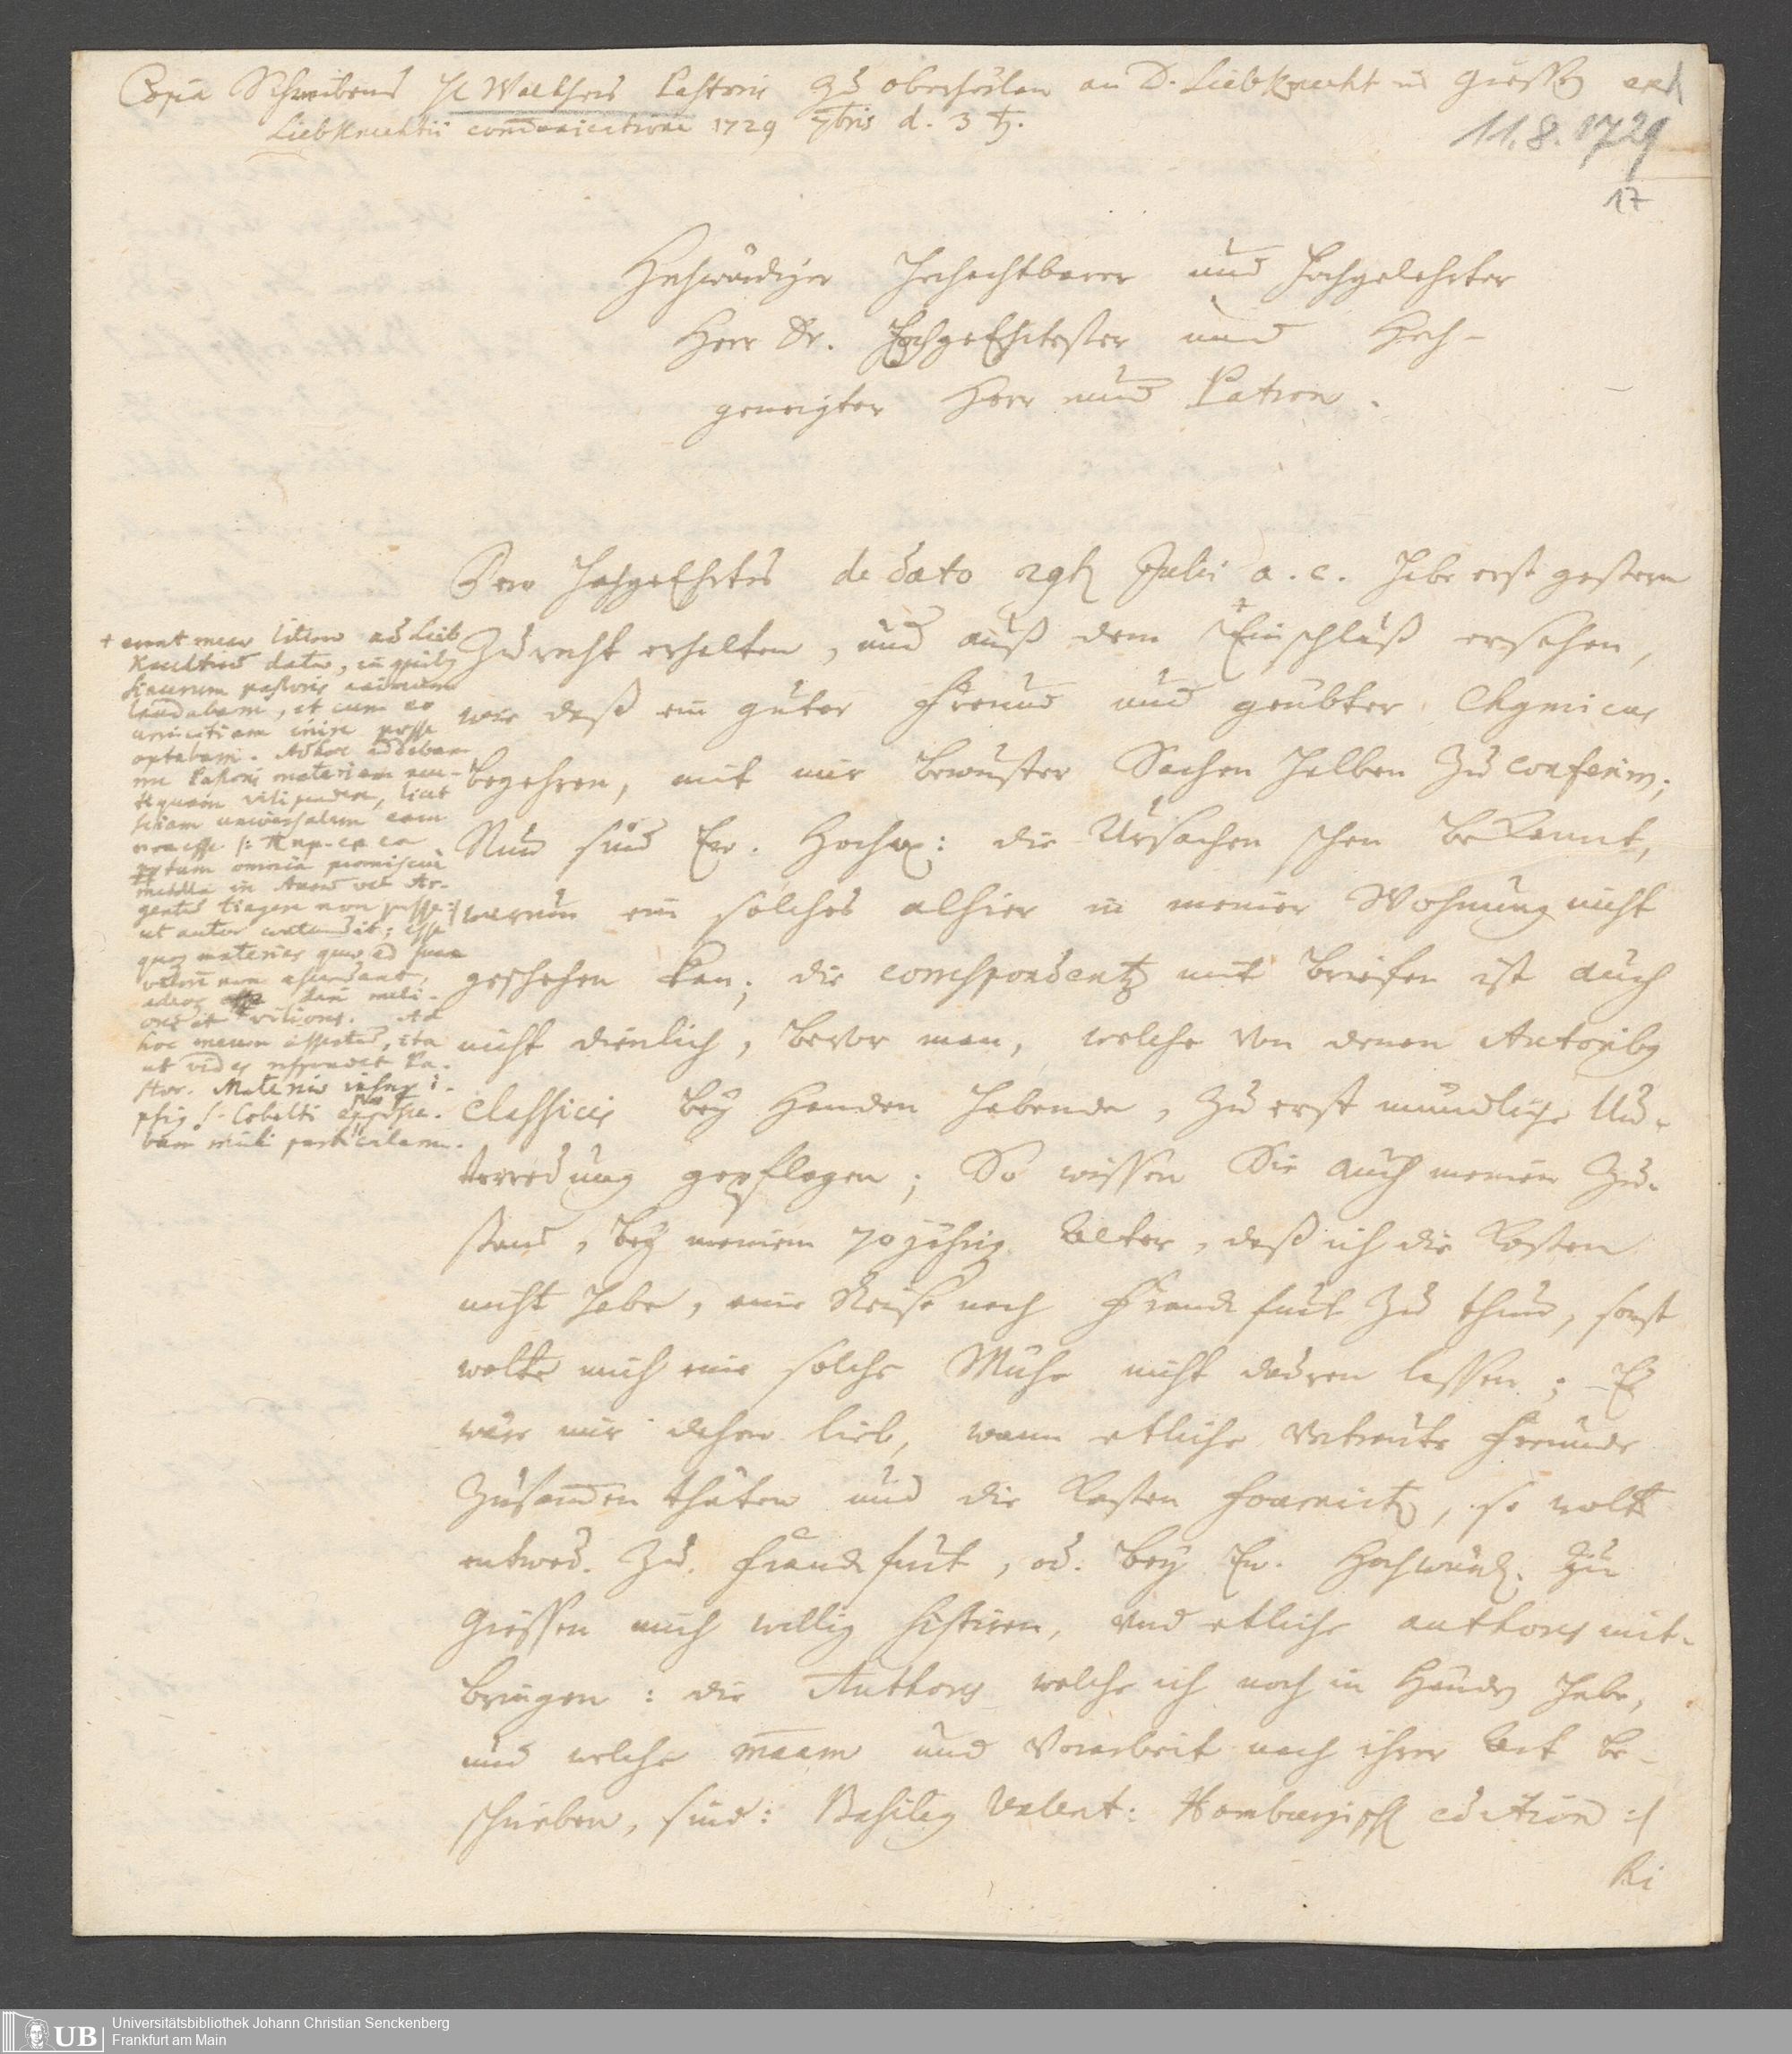 Copia Schreibens H Walthers Pastoris zu oberhörlen an D. Liebknecht in Giessen
Liebknechtii communicatione 1729 7bris d. 3 ♄.
11.8.1729
17
Hochwürdiger Hochachtbarer und Hochgelehrter
Herr Dr. Hochgeehrtester und Hoch-
geneigter Herr und Patron.
Dero Hochgeehrtes de dato 29ten Julii a. c. habe erst gestern
zu recht erhalten, und auß dem + Einschluß ersehen,
wie daß ein guter Freund und geübter Chymicus
begehren, mit mir bewuster Sachen halben zu conferirn;
Nun sind Ew. Hochw: die Ursachen schon bekannt,
warum ein solches alhier in meiner Wohnung nicht
geschehen kan; die correspondentz mit briefen ist auch
nicht dienlich, bevor man, welche von denen Autoribus
classicis bey Handen habende, zu erst mündliche Un-
terredung gepflogen; So wissen Sie auch meinen Zu-
stand, bey meinem 70 jährig Alter, daß ich die Kosten
nicht habe, eine Reise nach Franckfurt zu thun, sonst
wolte mich eine solche Mühe nicht dauren lassen; Es
wäre mir daher lieb, wann etliche vertraute Freunde
zusammen thäten und die Kosten fournirten, so wolte
entwed. zu Franckfurt, od. bey Ew. Hochwürd. zu
Giessen mich willig sistiren, und etliche authores mit-
bringen: die Authores welche ich noch in Handen habe,
und welche mãam und Vorarbeit nach ihrer Art be-
schrieben, sind: Basilius Valent: Hamburgisch edition :/
Ri
+ erant meae literae ad Lieb
knechtum datae, in quibus
laudabam, et cum eo
amicitiam inire posse
optabam. Adhoc addebam
me Pastoris materiam
vilipendere, licet
etiam universalem eam
non esse
omnia promiscue
metalla in Aurum vel Ar-
gentum tingere non posse :/
ut autor contendit; esse
quoq materias quae ad
hoc meum assertum, ita
ut vides respondet Pa-
stor. Materiae
Cobalti
bam mihi particulam.